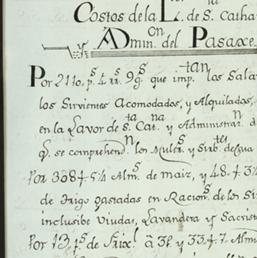 Costos de la L.r de S.ta Catha
y Ad.on min.n del Pasaxe
Por 2110. p.s 4 rr. 9 g.s que imp.tan los Sala
los Sirvientes Acomodados, y Alquilados,
en la Lavor de S.ta Cat.na y Administrar.n d
q.e se comprehend.n los Mulet.s y Sirb.tes de Gua
Por 308 f.s 5¼ Alm.s de maiz, y 48. f. 3½
de trigo gastadas en Racion.s de los Sir
inclusibe Viudas, Lavandera y Sacris
Por 13. f.s de Frixol a 3 p. y 33. f. 7. Alm